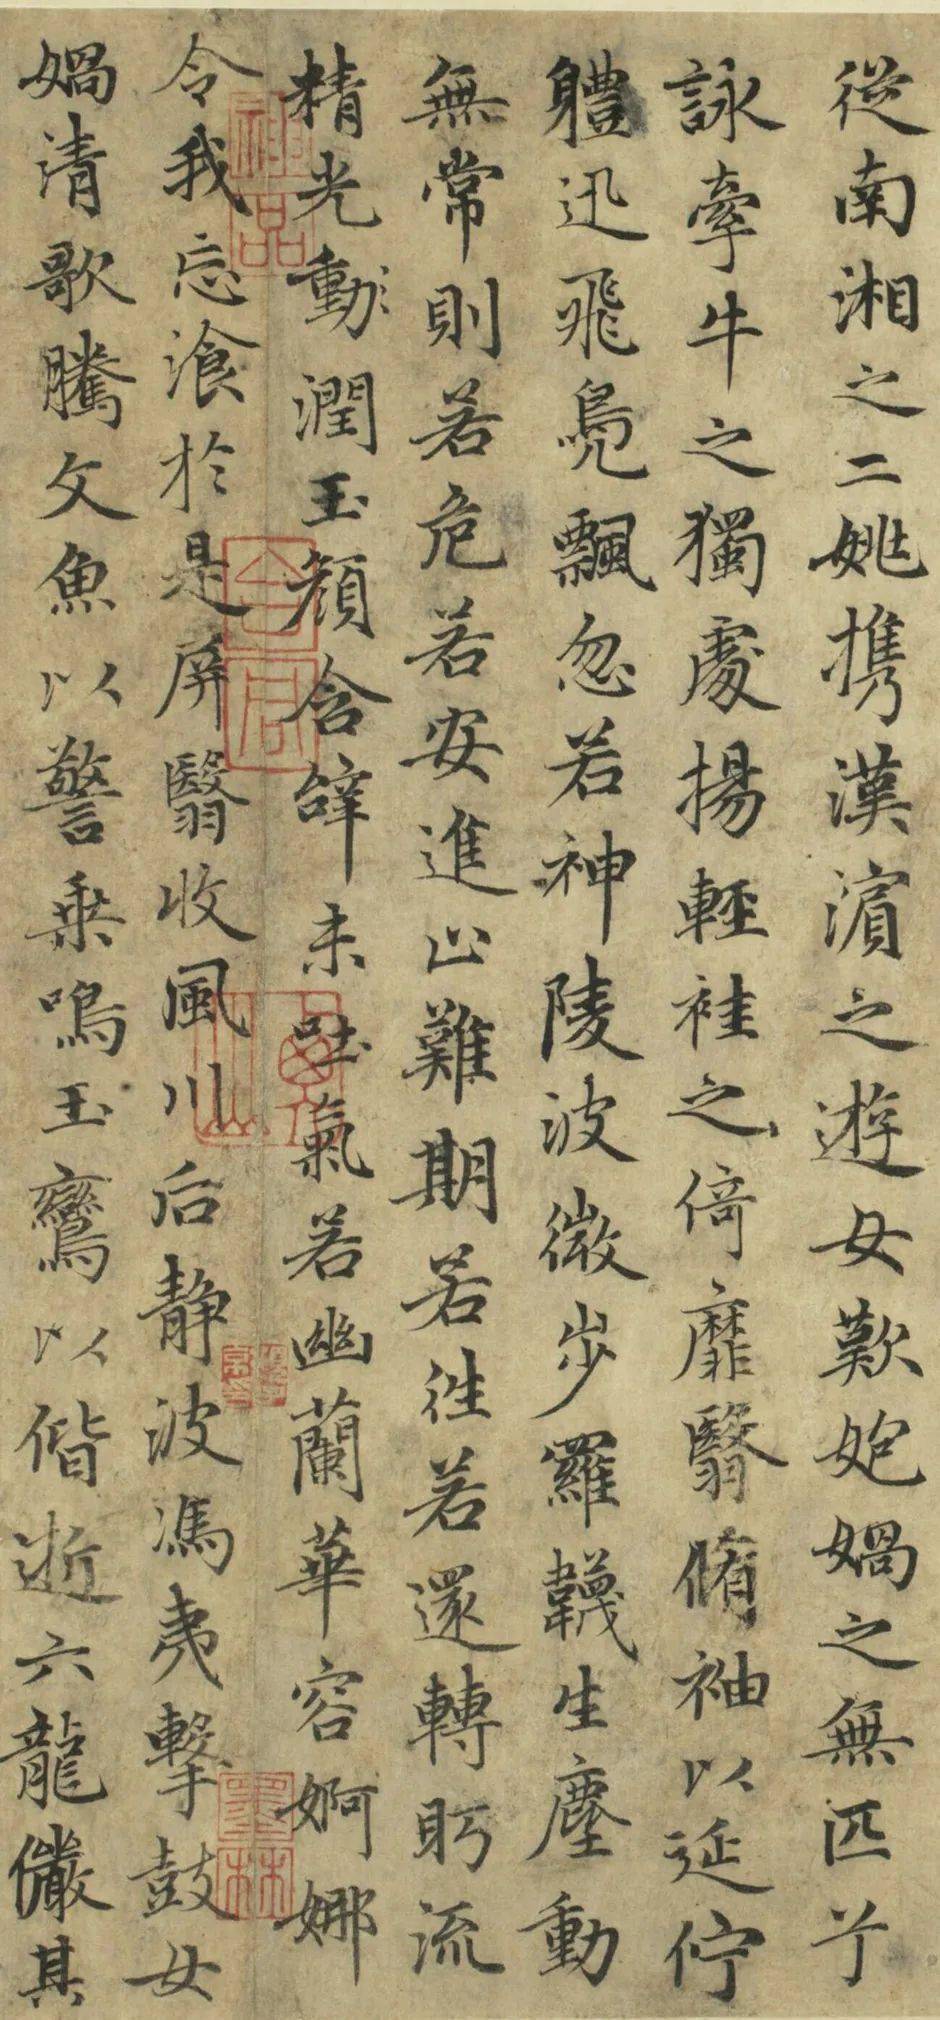 從南湘之二姚攜漢濱之遊女歎匏媧之無匹兮
詠牽牛之獨處揚輕袿之倚靡翳脩袖以延佇
軆迅飛鳧飄忽若神陵波微步羅韈生塵動
無常則若危若安進止難期若往若還轉眄流
精光動潤玉顏含辭未吐氣若幽蘭華容婀娜
令我忘飡於是屏翳收風川后靜波馮夷擊鼓女
媧清歌騰文魚以警乘鳴玉鸞以偕逝六龍儼其
神品
墨林